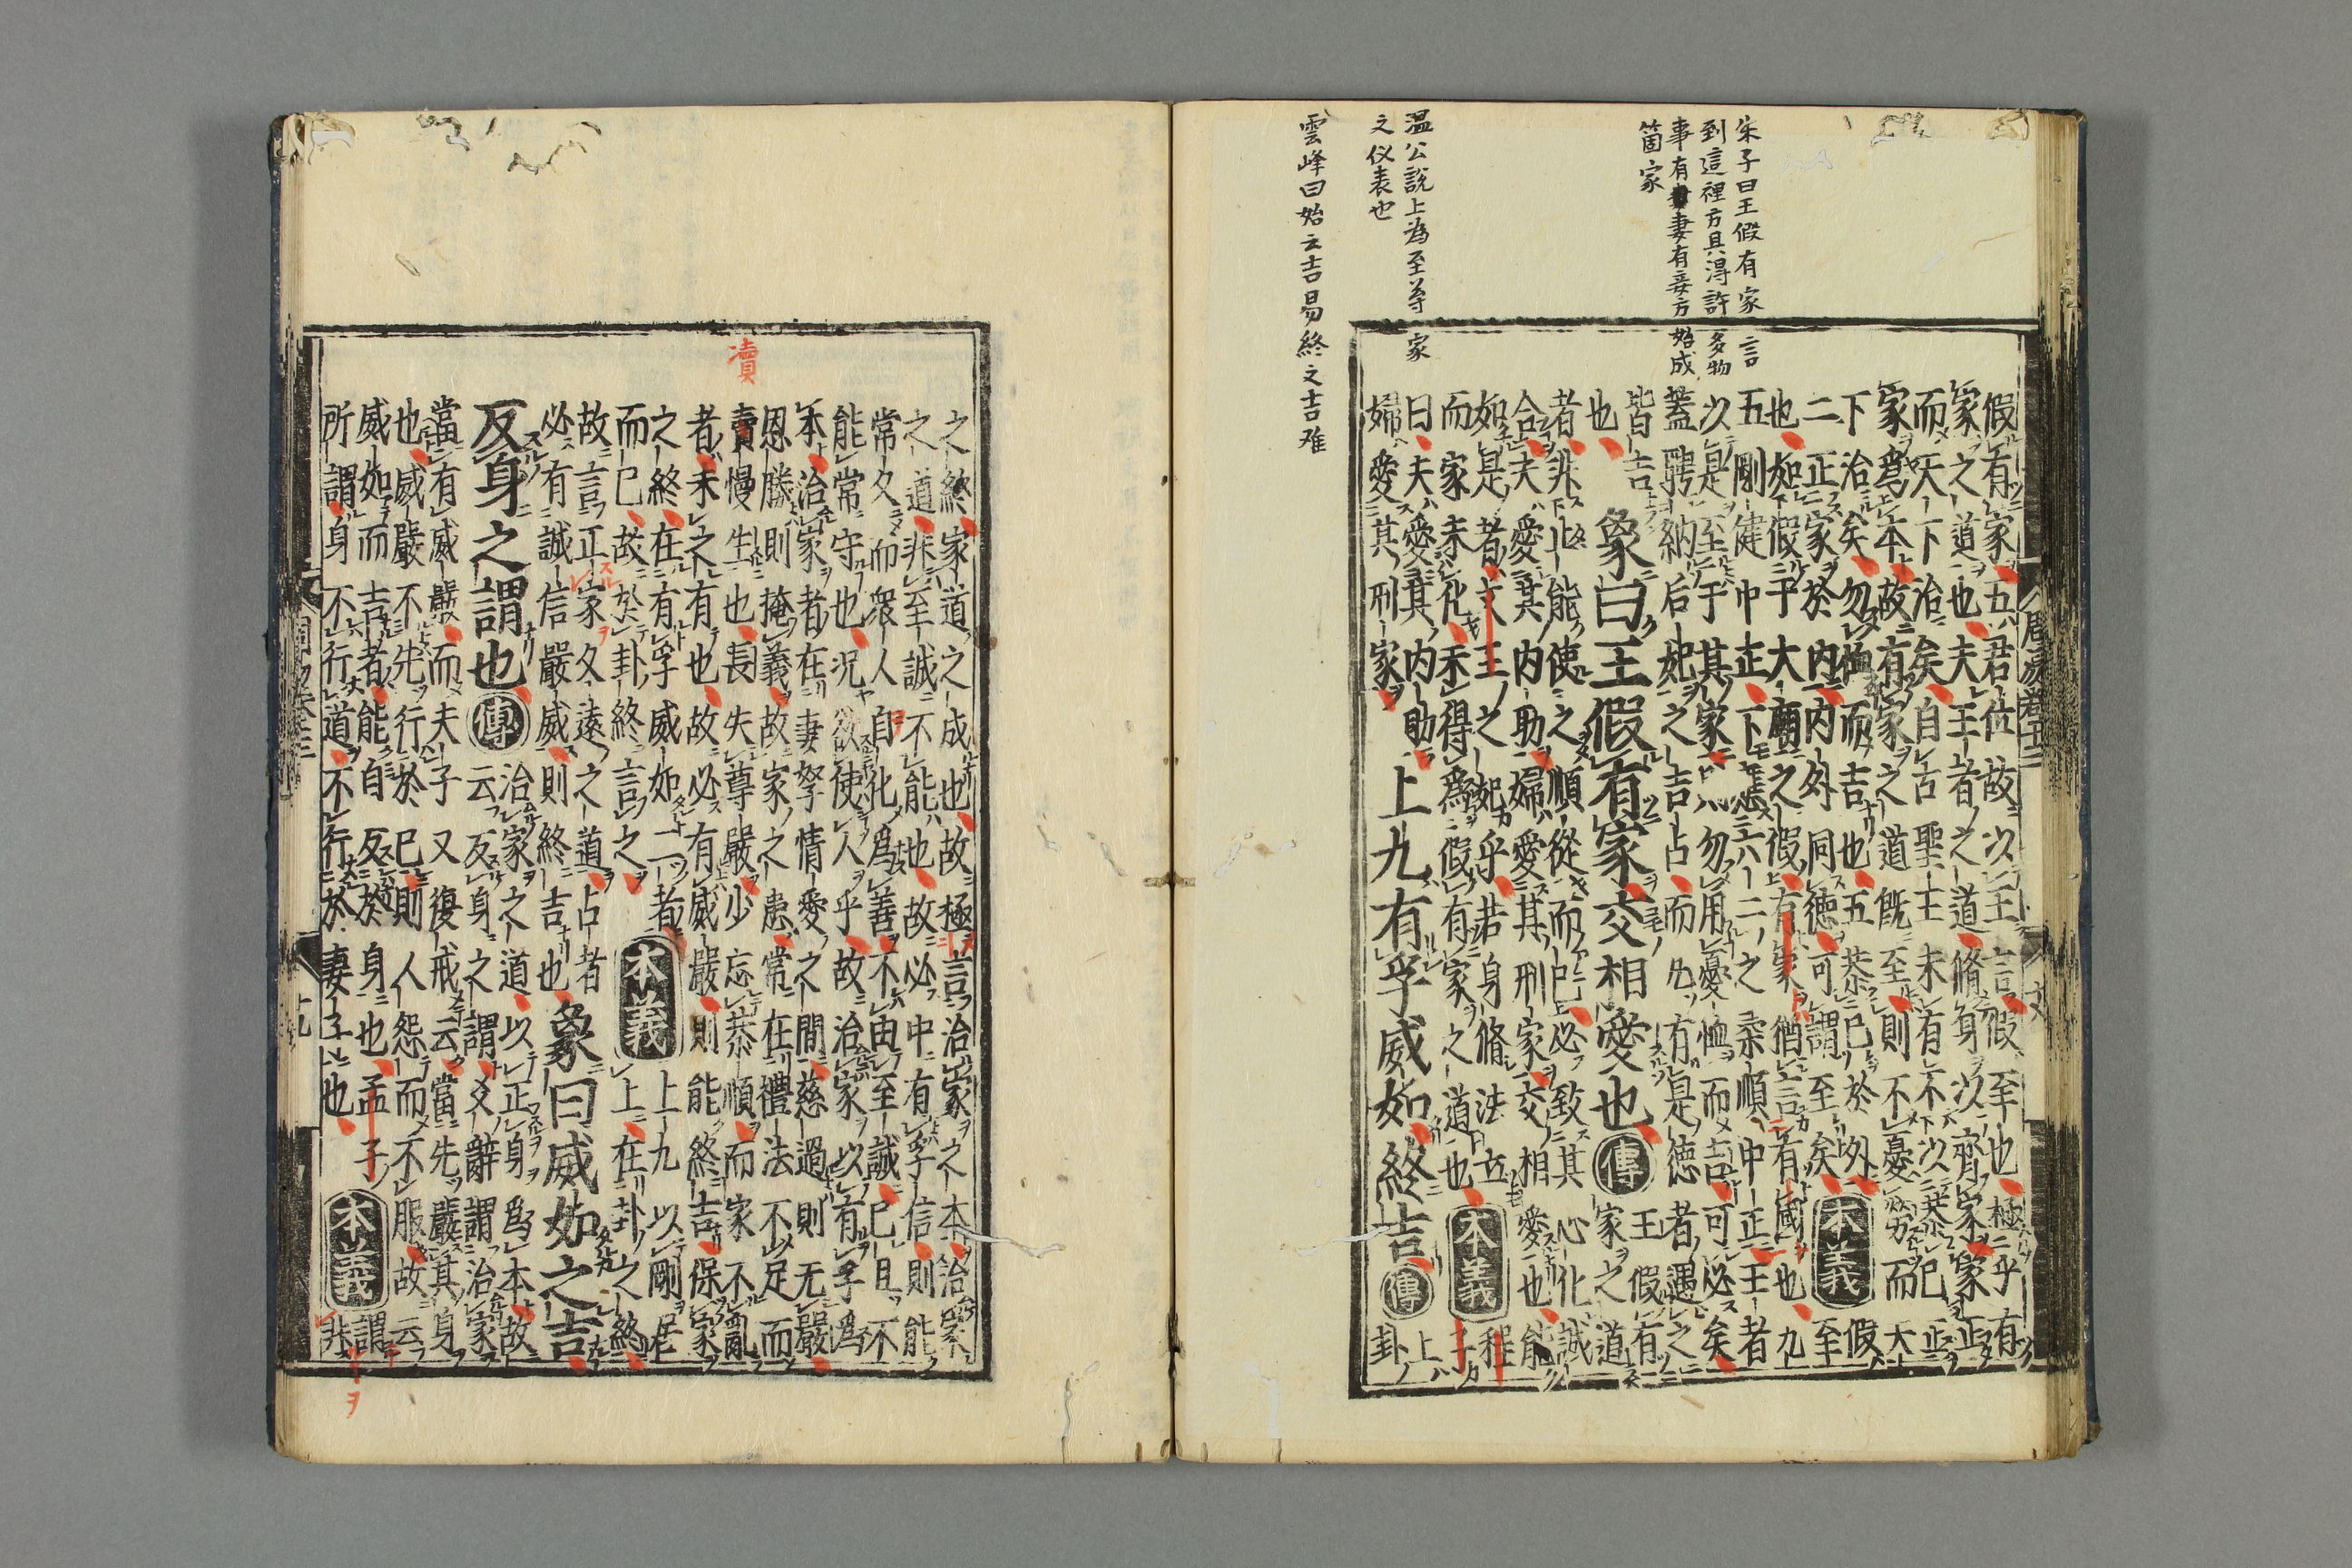 朱子曰王假有家言
到這裡方且得許多物
事有妻有妾方始成
箇家
温公説上為至尊家
之仪表也
雲峰曰始云吉易終之吉难
周易卷十三
假有家五君位故以王言假至也極乎有
家之道也夫王者之道脩身以齊家家正
而天下治矣自古聖王未有不以恭己正
家爲本故有家之道既至則不憂勞而天
下治矣勿恤而吉也五恭已於外
二正家於内内外同徳可謂至矣
本義
假
至
也如假于大廟之假有家猶言有國也九
五剛健中正下應六二之柔順中正王者
以是至于其家則勿用憂恤而吉可必矣
蓋聘納后妃之吉占而凡有是徳者遇之
皆吉
也
象曰王假有家交相愛也
傳
王假有
家之道
者非止能使之順從而已必致其心化誠
合夫愛其内助婦愛其刑家交相愛也能
如是者文王之妃乎若身脩法立
而家未化未得爲假有家之道也
本義
程
子
曰夫愛其内助
婦愛其刑家
上九有孚威如終吉
傳
上
卦
之終家道之成也故極言治家之本治家
之道非至誠不能也故必中有孚信則能
常久而衆人自化爲善不由至誠已且不
能常守也况欲使人乎故治家以有孚爲
本治家者在妻孥情愛之間慈過則无嚴
恩勝則掩義故家之患常在禮法不足而
瀆
賣慢生也長失尊嚴少忘恭順而家不亂
者未之有也故必有威嚴則能終吉保家
之終在有孚威如二者
而已故於卦終言之
本義
上九以剛居
上在卦之終
故言正家久遠之道占者
必有誠信嚴威則終吉也
象曰威如之吉
反身之謂也
傳
治家之道以正身爲本故
云反身之謂爻辭謂治家
當有威嚴而夫子又復戒云當先嚴其身
也威嚴不先行於已則人怨而不服故云
威如而吉者能自反於身也孟子
所謂身不行道不行於妻子也
本義
謂
非